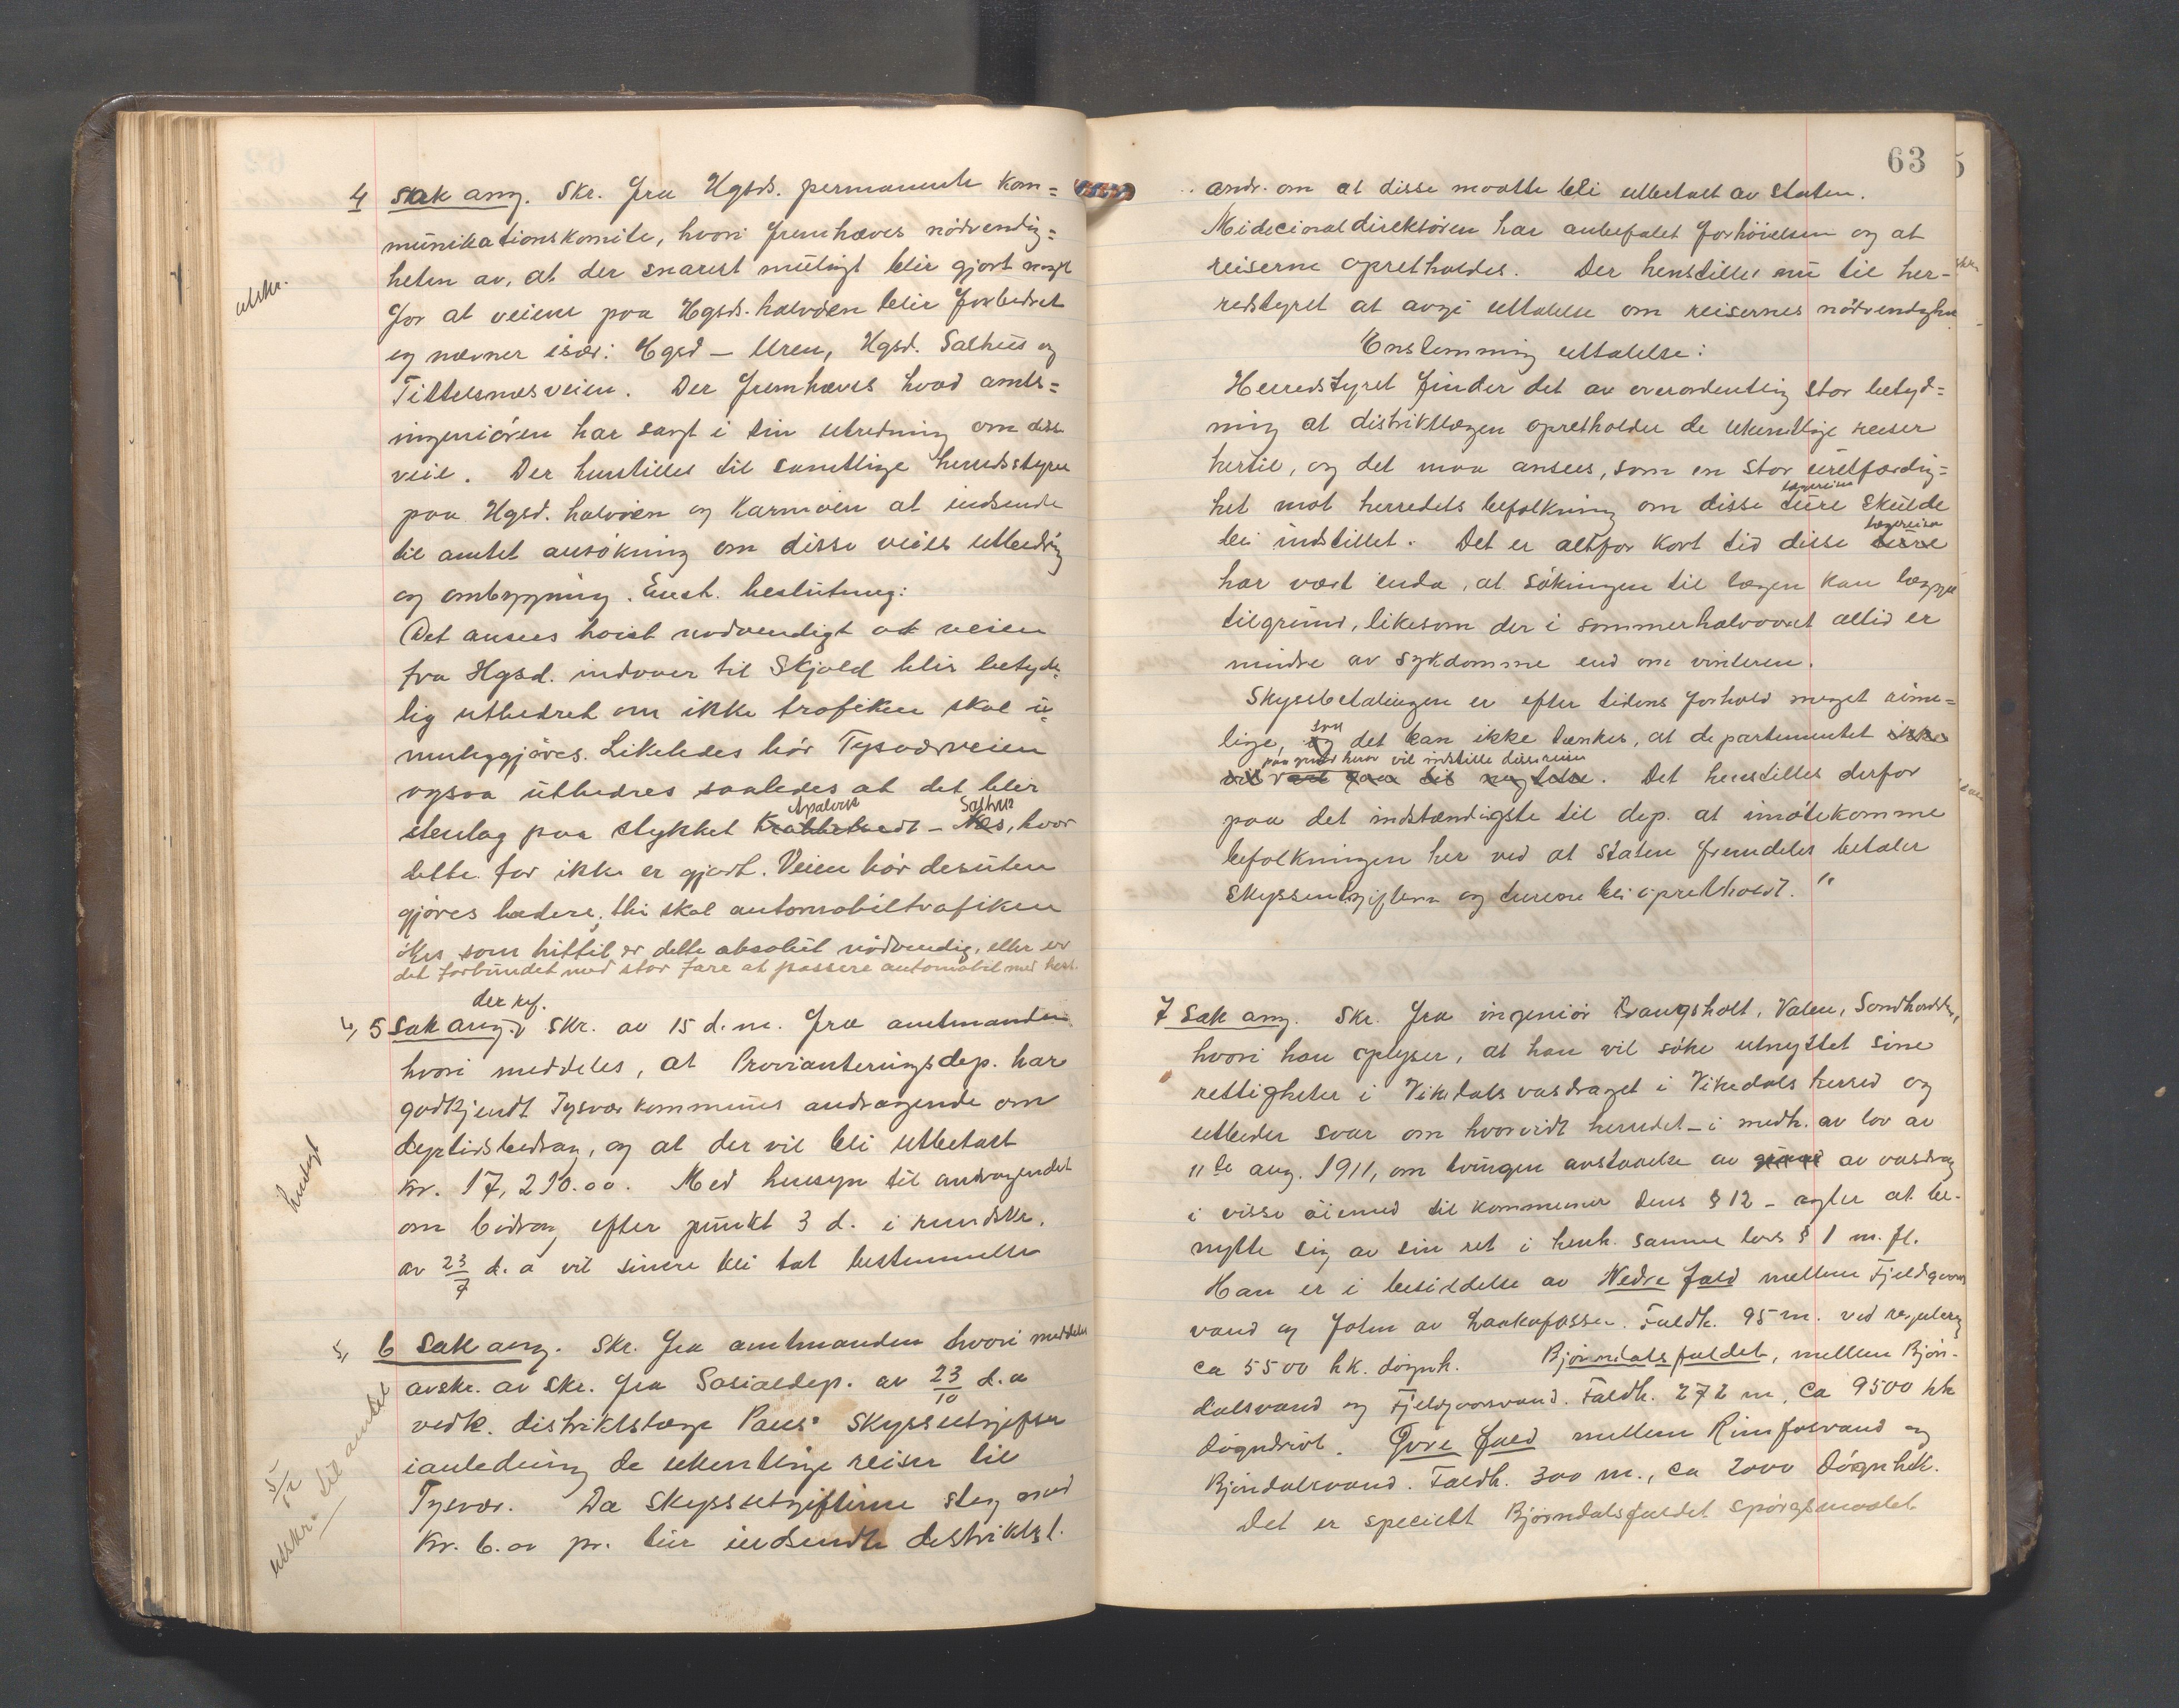 4 Sak ang. Skr. fra Hgsds. permanente kom=
munikationskomite, hvori fremhæves nödvendig=
heten av, at der snarest muligt blir gjort noget
utskr.
for at veiene paa Hgsds. halvöen blir forbedret
og nævner især: Hgsd – Uren, Hgsd. Salhus og
Tittelsnesveien. Der fremhæves hvad amts=
ingeniören har sagt i sin utredning om disse
veie. Der henstilles til samtlige herredsstyrer
paa Hgsd. halvöen og Karmöen at indsende
til amtet ansökning om disse veies utbedring
og ombygning. Enst. beslutning:
Det ansees höist nödvendigt at veien
fra Hgsd. indover til Skjold blir betyde-
lig utbedret om ikke trafiken skal u-
muliggjöres. Likeledes bör Tysværveien
ogsaa utbedres saaledes at det blir
Apalvik Salhus
stenlag paa stykket Krabbetvedt – Nes, hvor
dette för ikke er gjort. Veien bör desuten
gjöres bredere, thi skal automobiltrafiken
ökes som hittil er dette absolut nödvendig, eller er
det forbundet med stor fare at passere automobil med hest.
der ref.
4, 5 Sak ang. Skr. av 15 d.m. fra amtmanden
hvori meddeles, at Provianteringsdep. har
godkjendt Tysvær kommunes andragende om
dyrtidsbidrag, og at der vil bli utbetalt
henlagt
kr. 17,210.00. Med hensyn til andragendet
om bidrag efter punkt 3 d. i rundskr.
av 23/7 d.a vil senere bli tat bestemmelse
5, 6 Sak ang. Skr. fra amtmanden hvori meddeles
avskr. av Skr. fra Sosialdep. av 23/10 d.a
vedk. distriktslæge Paus' Skyssutgifter
ianledning de ukentlige reiser til
Tysvær. Da Skyssutgifterne steg med
kr. 6.00 pr. tur indsendte distriktsl.
5/12 utskr. til amtet
63
andr. om at disse maatte bli utbetalt av Staten.
Midecinaldirektören har anbefalet forhöielsen og at
reiserne opretholdes. Der henstilles nu til her-
redstyret at avgi uttalelse om reisernes nödvendighet
Enstemmig uttalelse:
Herredstyret finder det av overordentlig stor betyd=
ning at distriktlægen opretholder de ukentlige reiser
hertil, og det maa ansees, som en stor uretfærdig=
lægereiser
het mot herredets befolkning om disse ture skulde
lægereiser
bli indstillet. Det er altfor kort tid disse ture
har vært enda, at sökningen til lægen kan lægges
tilgrund, likesom der i sommerhalvaaret altid er
mindre av sykdomme end om vinteren.
Skyssbetalingen er efter tidens forhold meget rime=
saa
lige, og det kan ikke tænkes, at departementet ikke
paa grund herav vil indstille disse reiser
vil vært gaa til negtelse. Det henstilles derfor
paa det indstændigste til dep. at imötekomme
befolkningen her ved at Staten fremdeles betaler
Skyssutgifterne og turene bli opretholdt."
7 Sak ang. Skr. fra ingeniör Bangsholt, Valen, Söndhordld,
hvori han oplyser, at han vil söke utnyttet sine
rettigheter i Vikedals vasdraget i Vikedals herred og
utbeder svar om hvorvidt herredet – i medh. av lov av
11te aug. 1911, om tvungen avstaaelse av grund av vasdrag
i visse öiemed til kommuner dens § 12 – agter at be-
nytte sig av sin ret i henh. samme lovs § 1 m. fl.
Han er i besiddelse av Nedre fald mellem Fjeldgaars
vand og foten av Laakafossen. Faldh. 95 m. ved regulering
ca 5500 hk. dögnh. Björndalsfaldet, mellem Björn-
dalsvand og Fjeldgaarsvand. Faldh. 272 m, ca 9500 hk
dögndrivt. Övre fald mellem Rimfosvand og
Björndalsvand. Faldh. 300 m., ca 2000 dögnhk.
Det er specielt Björndalsfaldet spörgsmaalet